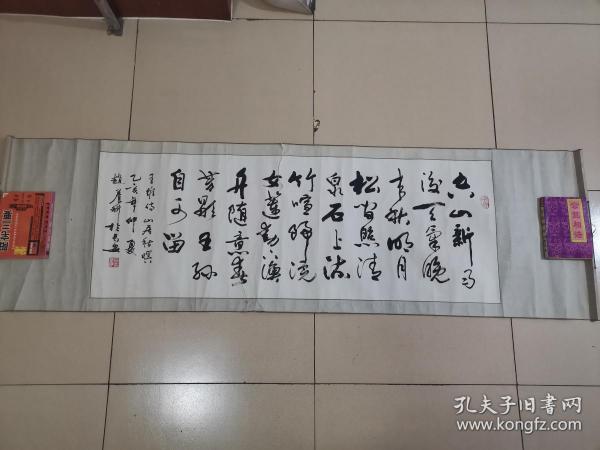 空山新雨
后天气晚
来秋明月
松间照清
泉石上流
竹喧归浣
女莲动渔
舟随意春
芳歇王孙
自可留
王维诗山居秋暝
乙亥年仲夏
孔夫子旧书网
www.kongfz.com